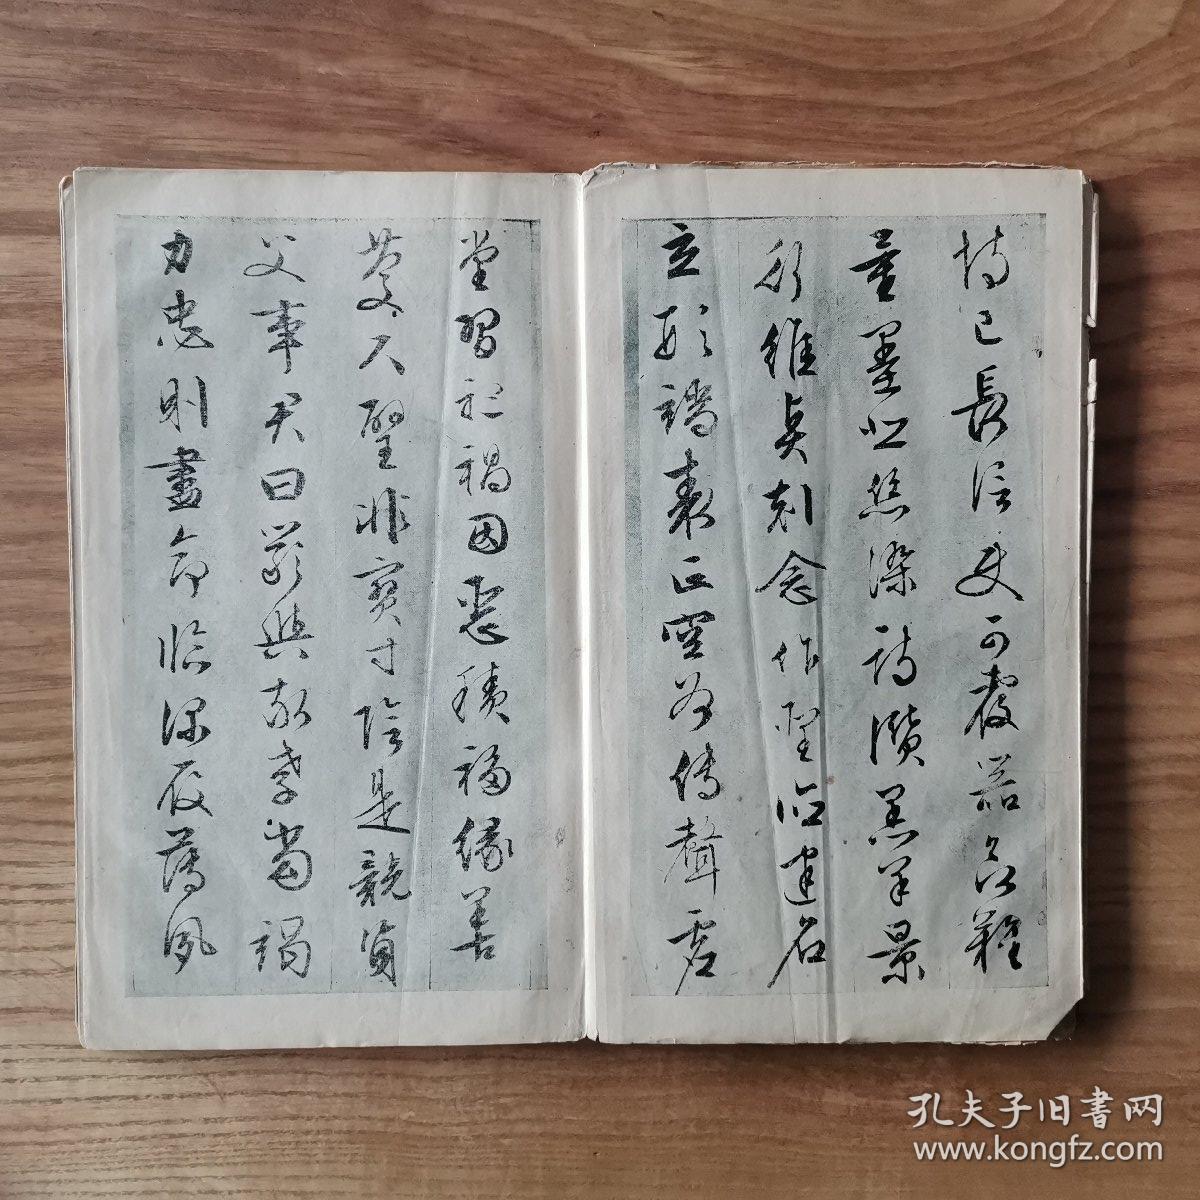 恃己長信使可覆器欲難
量墨悲絲染詩讚羔羊景
行維賢剋念作聖德建名
立形端表正空谷傳聲虛
堂習聽禍因惡積福緣善
慶尺璧非寶寸陰是競資
父事君曰嚴與敬孝當竭
力忠則盡命臨深履薄夙
孔夫子旧书网
www.kongfz.com